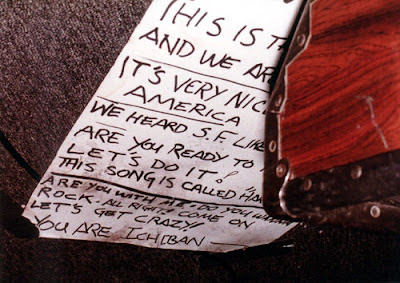 THIS IS
AND WE
IT'S VERY
AMERICA
WE HEARD S.F.
ARE YOU READY TO
LET'S DO IT!
THIS SONG IS CALLED
ARE YOU WITH ME. DO YOU
ROCK. ALL RIGHT! COME ON
LET'S GET CRAZY!!
YOU ARE ICHIBAN